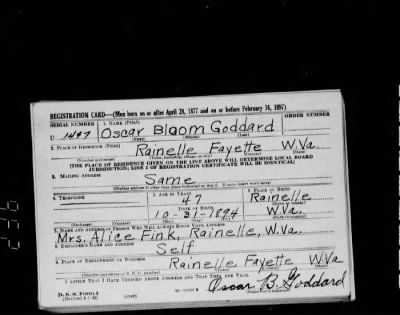 REGISTRATION CARD—(Men born on or after April 28, 1877 and on or before February 16, 1897)
SERIAL NUMBER 1. NAME (Print) ORDER NUMBER
U 1497 Oscar Bloom Goddard
(First) (Middle) (Last)
2. PLACE OF RESIDENCE (Print)
Rainelle Fayette W.Va.
(Number and street) (Town, township, village, or city) (County) (State)
[THE PLACE OF RESIDENCE GIVEN ON THE LINE ABOVE WILL DETERMINE LOCAL BOARD
JURISDICTION; LINE 2 OF REGISTRATION CERTIFICATE WILL BE IDENTICAL]
3. MAILING ADDRESS
Same
[Mailing address if other than place indicated on line 2. If same insert word same]
4. TELEPHONE 5. AGE IN YEARS 6. PLACE OF BIRTH
47 Rainelle
DATE OF BIRTH (Town or county)
10-31-1894 W.Va.
(Exchange) (Number) (Mo.) (Day) (Yr.) (State or country)
7. NAME AND ADDRESS OF PERSON WHO WILL ALWAYS KNOW YOUR ADDRESS
Mrs. Alice Fink, Rainelle, W.Va.
8. EMPLOYER'S NAME AND ADDRESS
Self
9. PLACE OF EMPLOYMENT OR BUSINESS
Rainelle Fayette W.Va
(Number and street or R. F. D. number) (Town) (County) (State)
I AFFIRM THAT I HAVE VERIFIED ABOVE ANSWERS AND THAT THEY ARE TRUE.
D. S. S. Form 1
(Revised 4-1-42) (over) Oscar B. Goddard